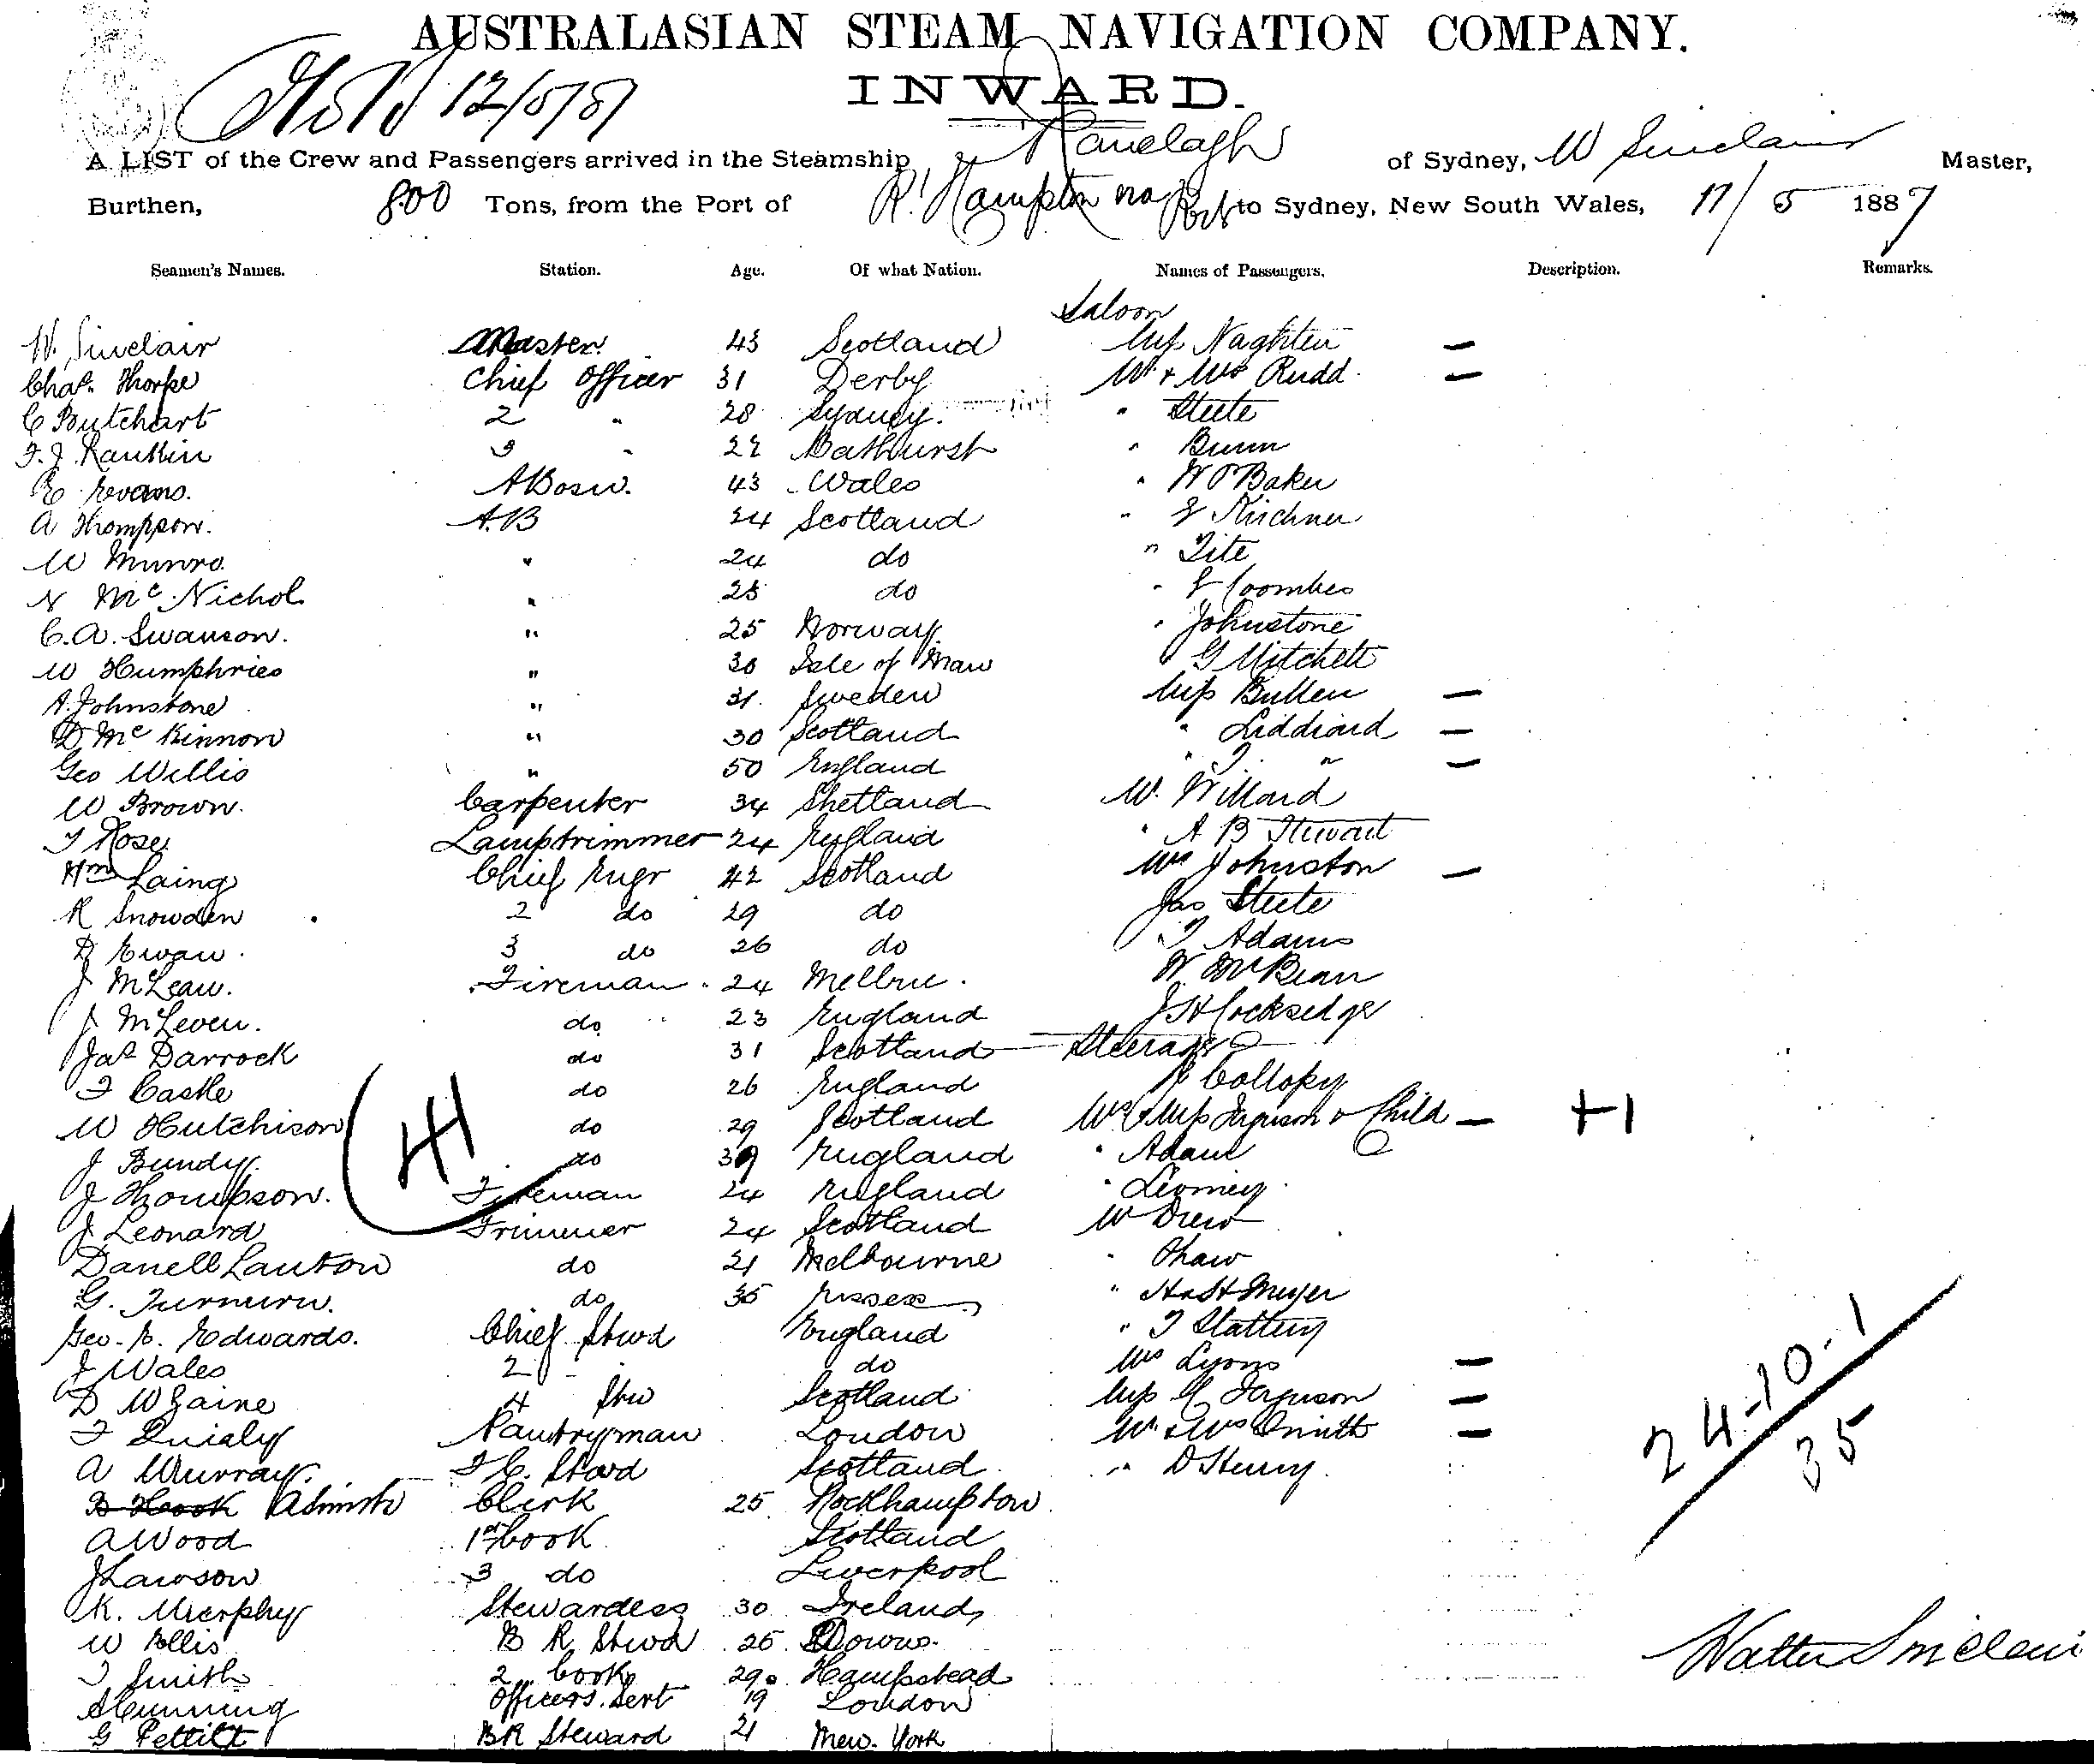 AUSTRALASIAN STEAM NAVIGATION COMPANY.
INWARD.
12/5/87
A LIST of the Crew and Passengers arrived in the Steamship Ranelagh of Sydney, W Sinclair Master,
Burthen, 800 Tons, from the Port of R. Hampton to Sydney, New South Wales, 11/5 1887
Seamen's Names. Station. Age. Of what Nation. Names of Passengers. Description. Remarks.
Saloon
W. Sinclair Master 43 Scotland Miss Naghten —
Chas. Thorpe Chief Officer 31 Derby Mr & Mrs Rudd. —
C Butchart 2 " 28 Sydney. " Steete
F. J. Rankin 3 " 22 Bathurst " Bunn
E Evans. ABosn. 43 Wales " W O Baker
A Thompson. A.B 24 Scotland " Kirchner
W Munro " 24 do " Tite
N McNichol " 25 do " Coombes
C.A. Swanson. " 25 Norway " Johnstone
W Humphries " 30 Isle of Man " G Mitchell
A. Johnstone " 31. Sweden Miss Bullen —
D McKinnon " 30 Scotland " Liddiard —
Geo Willis " 50 England " " —
W Brown. Carpenter 34 Shetland W. Willard
T Rose Lamptrimmer 24 England " A B Stewart
Wm Laing Chief Engr 42 Scotland Mrs Johnston —
R Snowden 2 do 29 do Jas Steete
D Ewan. 3 do 26 do T Adams
J McLean. Fireman 24 Melbne. W. McBean
J McLeven. do 23 England J H Cocksedge
Jas Darrock do 31 Scotland Steerage
F Castle do 26 England Collopy
W Hutchison do 29 Scotland Mrs & Miss Ferguson & Child — +1
J Bundy. do 39 England " Adam
J Thompson. Fireman 24 England
J Leonard Trimmer 24 Scotland W Drew
Danell Lauton do 21 Melbourne " Shaw
G. do 35 Essex "
Geo. Edwards. Chief Stwd England " T Slattery
J Wales 2 do Mrs Lyons —
D 4 Stw Scotland Miss Ferguson —
F Pantryman London Mr & Mrs Smith —
A Murray. F C. Stwd Scotland " D Henry.
Clerk 25 Rockhampton
A Wood 1st Cook Scotland
J Lawson 3 do Liverpool
K. Murphy Stewardess 30 Ireland
W Ellis B R Stwd 26 Downs.
Smith 2 Cook 29 Hampstead
Officers. Servt 19 London
G Pettitt BR Steward 21 New. York
24-10-1
35
Walter Sinclair